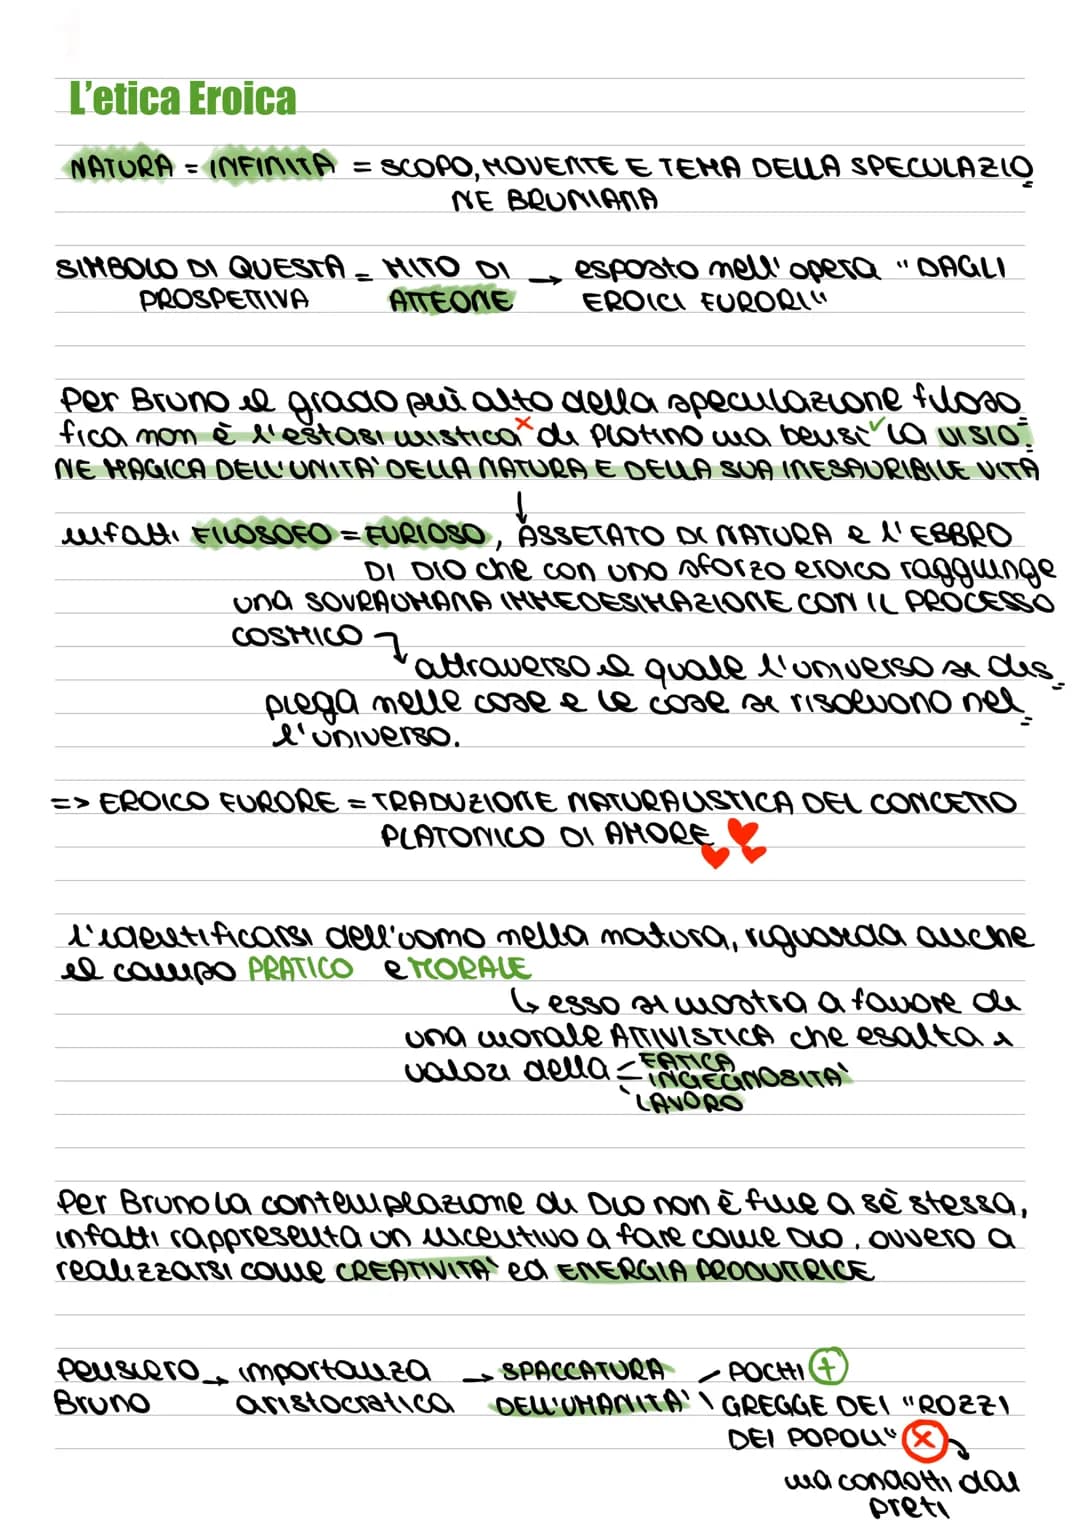 L'etica Eroica
NATURA = INFINITA = SCOPO, MOVENTE E TEMA DELLA SPECULAZIO
NE BRUNIANA
SIMBOLO DI QUESTA = MITO DI → esposto nell'opera "DAGLI
PROSPETTIVA ATTEONE EROICI FURORI"
Per Bruno il grado più alto della speculazione filoso=
fica non è l'estasi mistica × di Plotino ma bensì ✓ la VISIO=
NE MAGICA DELL'UNITA' DELLA NATURA E DELLA SUA INESAURIBILE VITA
↓
infatti FILOSOFO = FURIOSO, ASSETATO DI NATURA e l'EBBRO
DI DIO che con uno sforzo eroico raggiunge
una SOVRAUMANA IMMEDESIMAZIONE CON IL PROCESSO
COSMICO
↳ attraverso il quale l'universo si dis=
piega nelle cose e le cose si risolvono nel=
l'universo.
=> EROICO FURORE = TRADUZIONE NATURALISTICA DEL CONCETTO
PLATONICO DI AMORE
l'identificarsi dell'uomo nella natura, riguarda anche
il campo PRATICO e MORALE
↳ esso si mostra a favore di
una morale ATTIVISTICA che esalta i
valori della FATICA
INGEGNOSITA'
LAVORO
Per Bruno la contemplazione di Dio non è fine a sè stessa,
infatti rappresenta un incentivo a fare come Dio, ovvero a
realizzarsi come CREATIVITA' ed ENERGIA PRODUTTRICE
Pensiero → importanza → SPACCATURA - POCHI +
Bruno aristocratica DELL'UMANITA' \ GREGGE DEI "ROZZI
DEI POPOLI" ×
ma condotti dai
preti